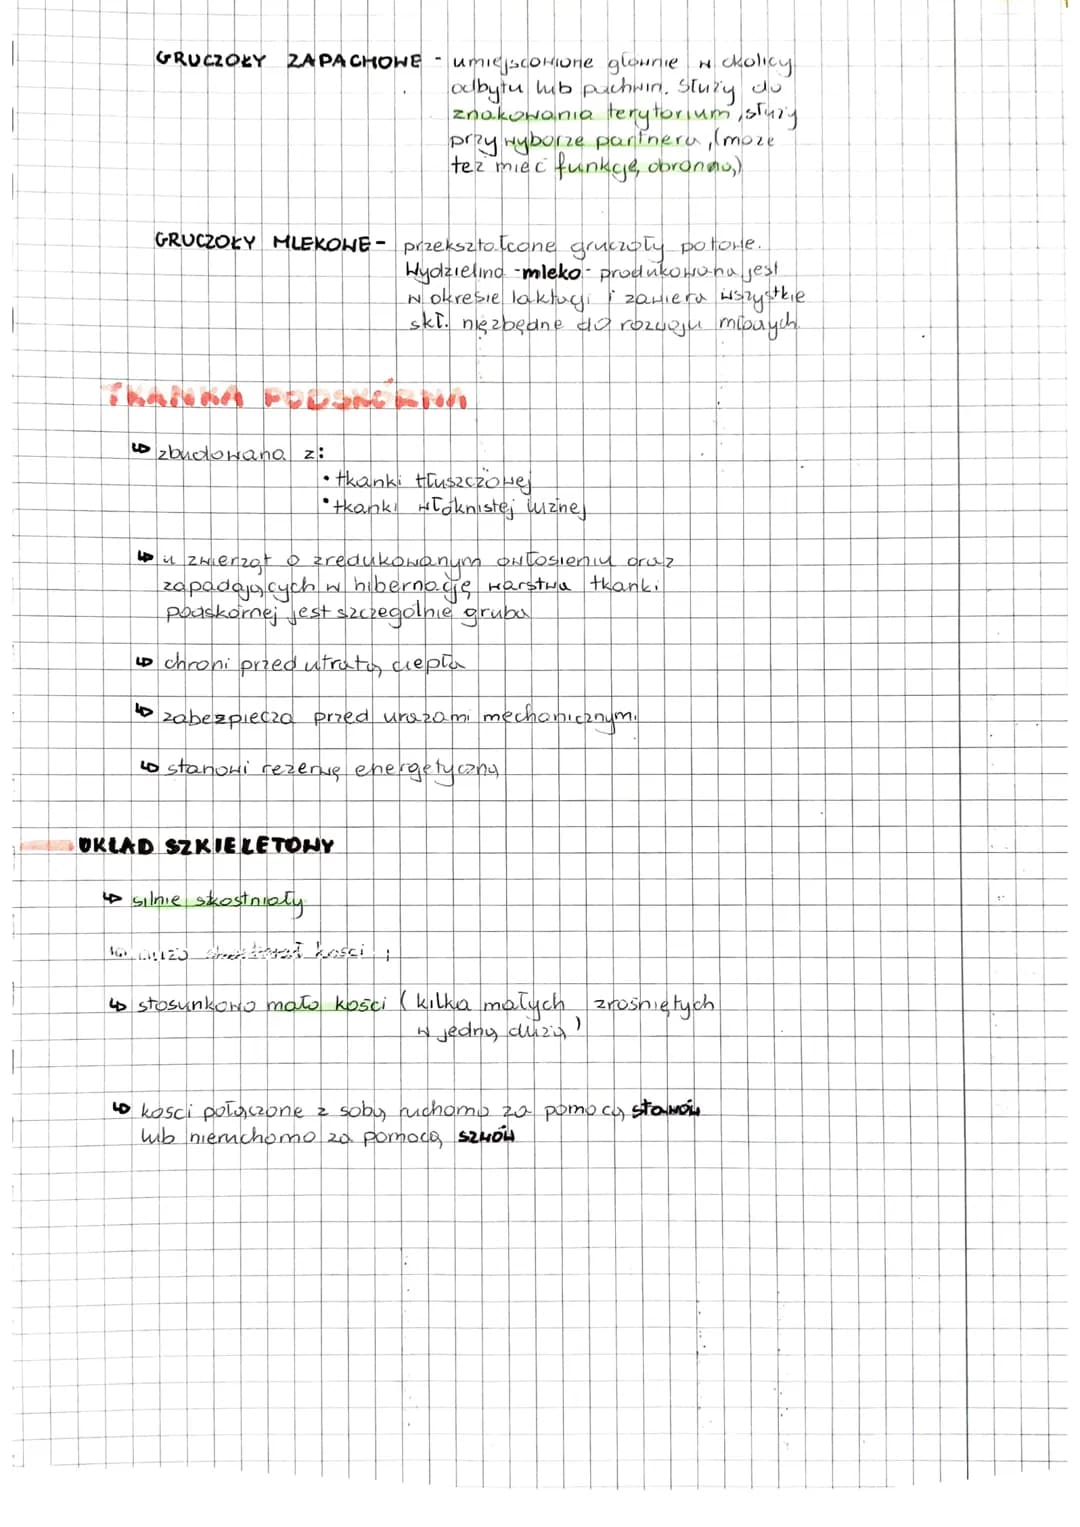 GRUCZOŁY ZAPACHOWE - umiejscowione głównie w okolicy
odbytu lub pachwin. Służy do
znakowania terytorium, służy
przy wyborze partnera, (może
też mieć funkcję obronną)
GRUCZOŁY MLEKOWE - przekształcone gruczoły potowe.
Wydzielina - mleko - produkowana jest
w okresie laktacji i zawiera wszystkie
skł. niezbędne do rozwoju młodych.
TKANKA PODSKÓRNA
↳ zbudowana z:
• tkanki tłuszczowej
• tkanki włóknistej luźnej
↳ u zwierząt o zredukowanym owłosieniu oraz
zapadających w hibernację warstwa tkanki
podskórnej jest szczególnie gruba
↳ chroni przed utratą ciepła
↳ zabezpiecza przed urazami mechanicznymi
↳ stanowi rezerwę energetyczną
UKŁAD SZKIELETOWY
↳ silnie skostniały
kości
↳ stosunkowo mało kości (kilka małych zrośniętych
w jedną dużą)
↳ kości połączone z sobą ruchomo za pomocą stawów
lub nieruchomo za pomocą szwów